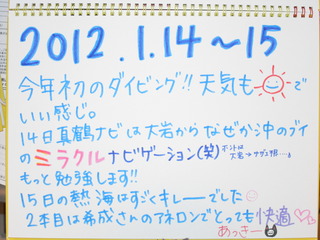 2012.1.14〜15
今年初のダイビング!!天気も で
いい感じ。
14日真鶴ナビは大岩からなぜか沖のブイ
のミラクルナビゲーション(笑)
もっと勉強します!!
15日の熱海はすごくキレーでした
2本目は希成さんのアネロンでとっても快適♡
あっきー